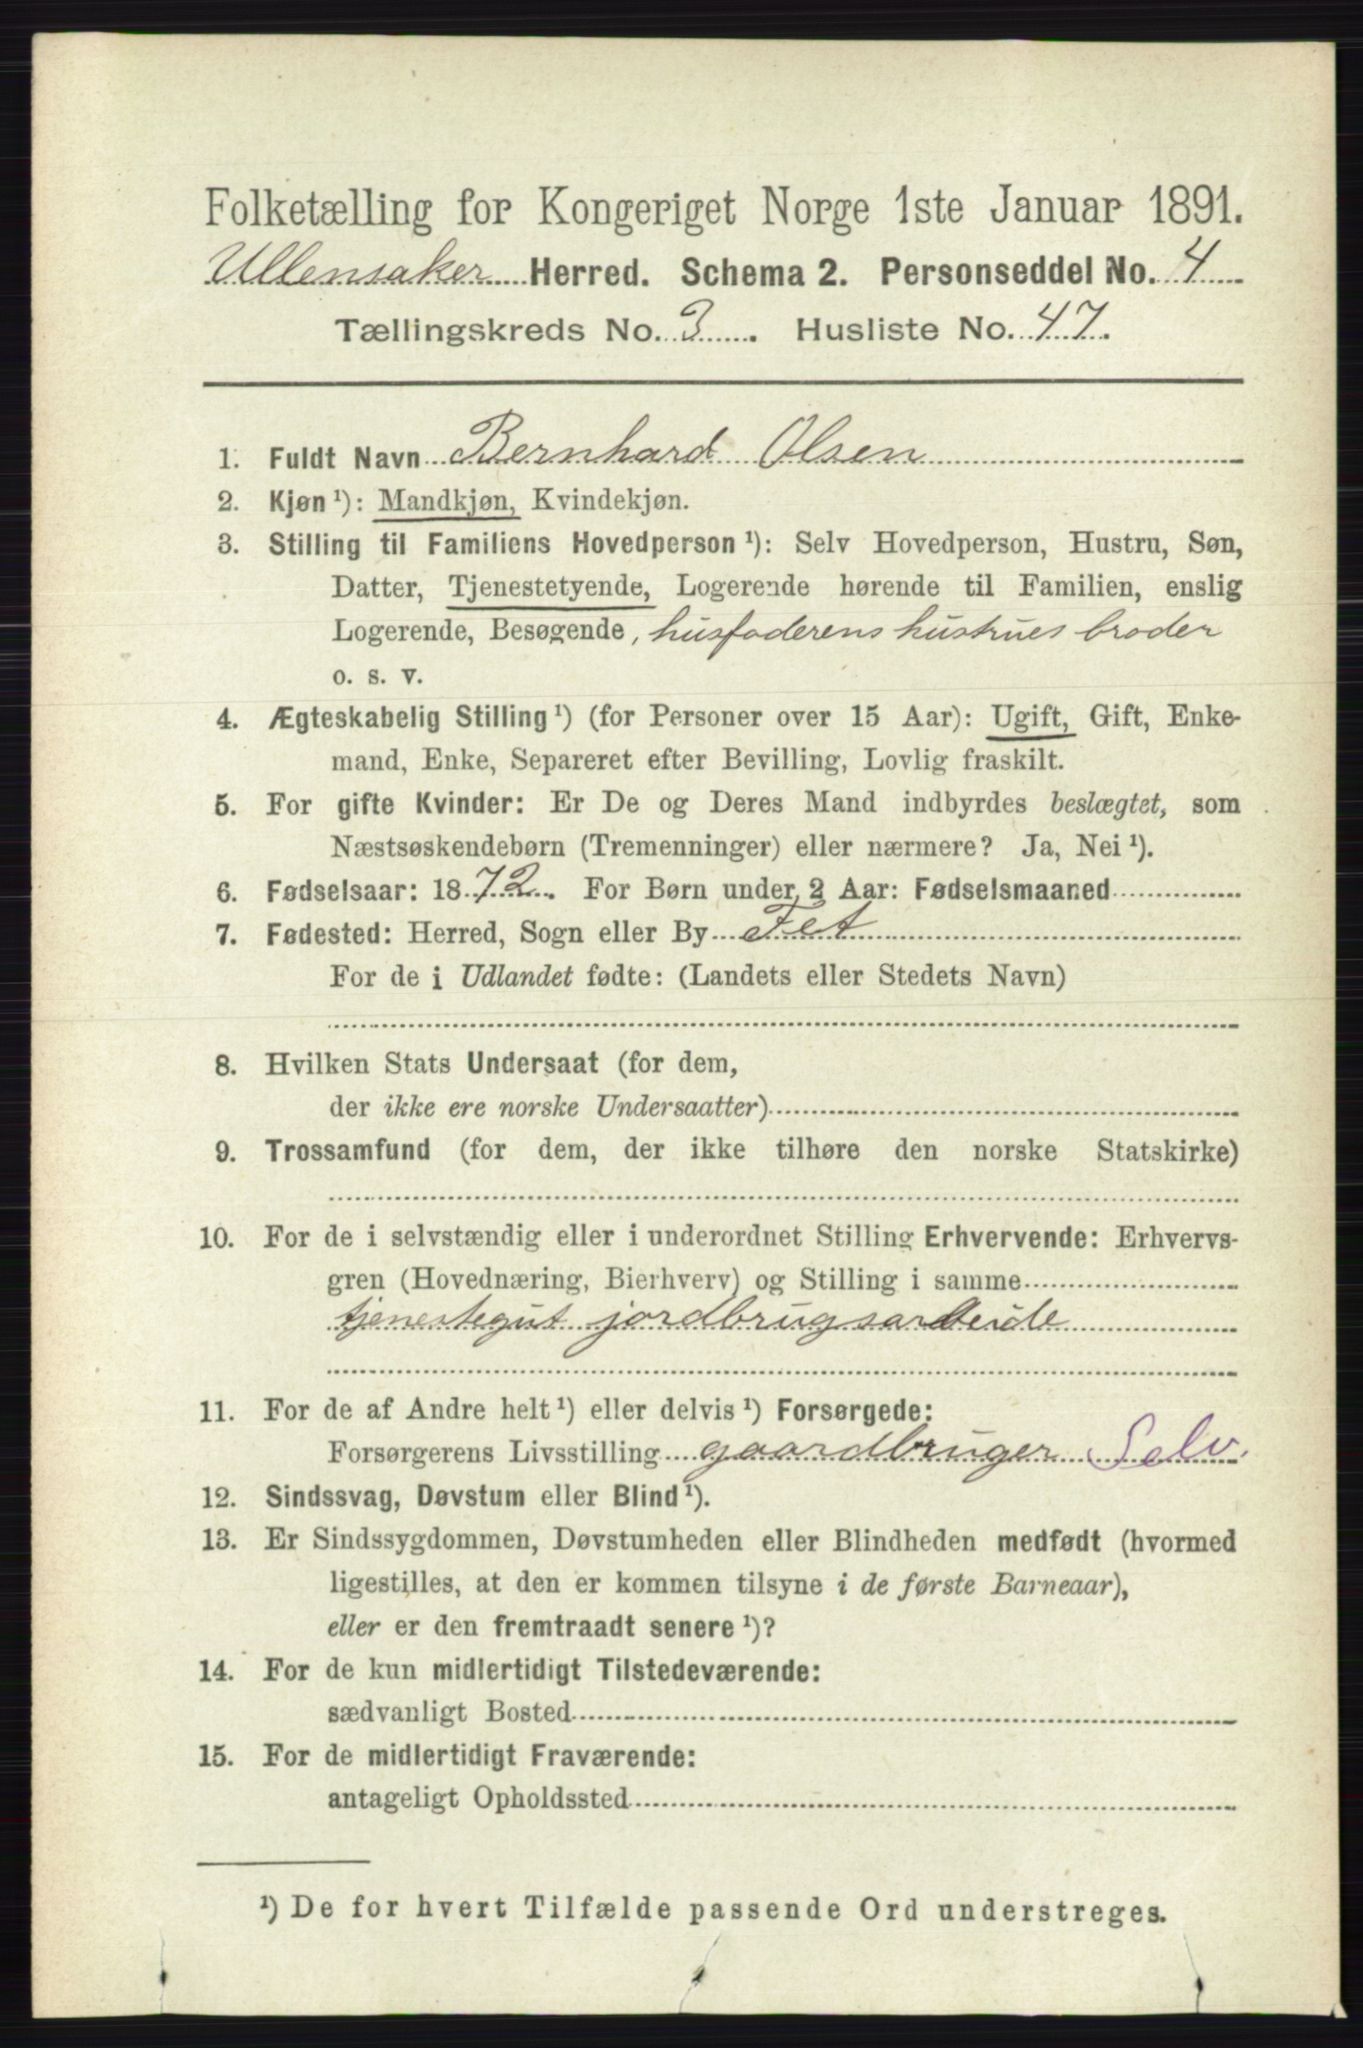 Folketælling for Kongeriget Norge 1ste Januar 1891.
Ullensaker Herred. Schema 2. Personseddel No. 4
Tællingskreds No. 3. Husliste No. 47.
1. Fuldt Navn Bernhard Olsen
2. Kjøn ¹): Mandkjøn, Kvindekjøn.
3. Stilling til Familiens Hovedperson ¹): Selv Hovedperson, Hustru, Søn,
Datter, Tjenestetyende, Logerende hørende til Familien, enslig
Logerende, Besøgende, husfaderens hustrues broder
o. s. v.
4. Ægteskabelig Stilling ¹) (for Personer over 15 Aar): Ugift, Gift, Enke-
mand, Enke, Separeret efter Bevilling, Lovlig fraskilt.
5. For gifte Kvinder: Er De og Deres Mand indbyrdes beslægtet, som
Næstsøskendebørn (Tremenninger) eller nærmere? Ja, Nei ¹).
6. Fødselsaar: 1872. For Børn under 2 Aar: Fødselsmaaned
7. Fødested: Herred, Sogn eller By Fet
For de i Udlandet fødte: (Landets eller Stedets Navn)
8. Hvilken Stats Undersaat (for dem,
der ikke ere norske Undersaatter)
9. Trossamfund (for dem, der ikke tilhøre den norske Statskirke)
10. For de i selvstændig eller i underordnet Stilling Erhvervende: Erhvervs-
gren (Hovednæring, Bierhverv) og Stilling i samme
tjenestegut jordbrugsarbeide
11. For de af Andre helt ¹) eller delvis ¹) Forsørgede:
Forsørgerens Livsstilling gaardbruger Selv.
12. Sindssvag, Døvstum eller Blind ¹).
13. Er Sindssygdommen, Døvstumheden eller Blindheden medfødt (hvormed
ligestilles, at den er kommen tilsyne i de første Barneaar),
eller er den fremtraadt senere ¹)?
14. For de kun midlertidigt Tilstedeværende:
sædvanligt Bosted
15. For de midlertidigt Fraværende:
antageligt Opholdssted
¹) De for hvert Tilfælde passende Ord understreges.